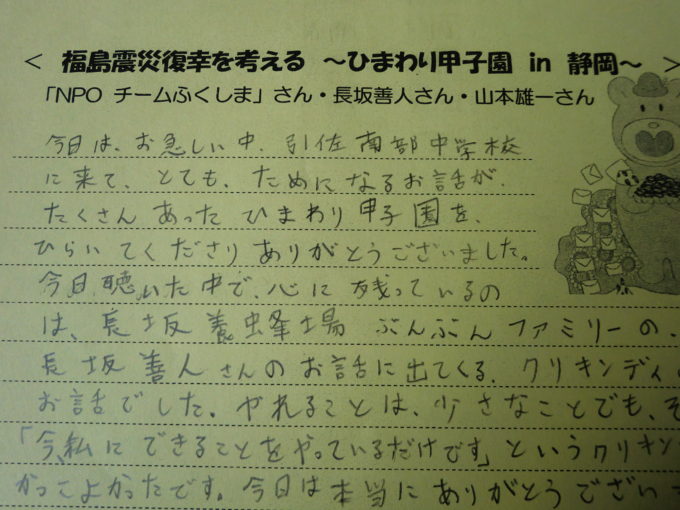 < 福島震災復幸を考える ~ひまわり甲子園 in 静岡~ >
「NPO チームふくしま」さん・長坂善人さん・山本雄一さん
今日は、お急しい中、引佐南部中学校
に来て、とても、ためになるお話が、
たくさんあったひまわり甲子園を、
ひらいてくださりありがとうございました。
今日聴いた中で、心に残っているの
は、長坂養蜂場ぶんぶんファミリーの、
長坂善人さんのお話に出てくる、クリキンディ
お話でした。やれることは、少さなことでも、そ
「今、私にできることをやっているだけです」というクリキン
かっこよかったです。今日は本当にありがとうござい